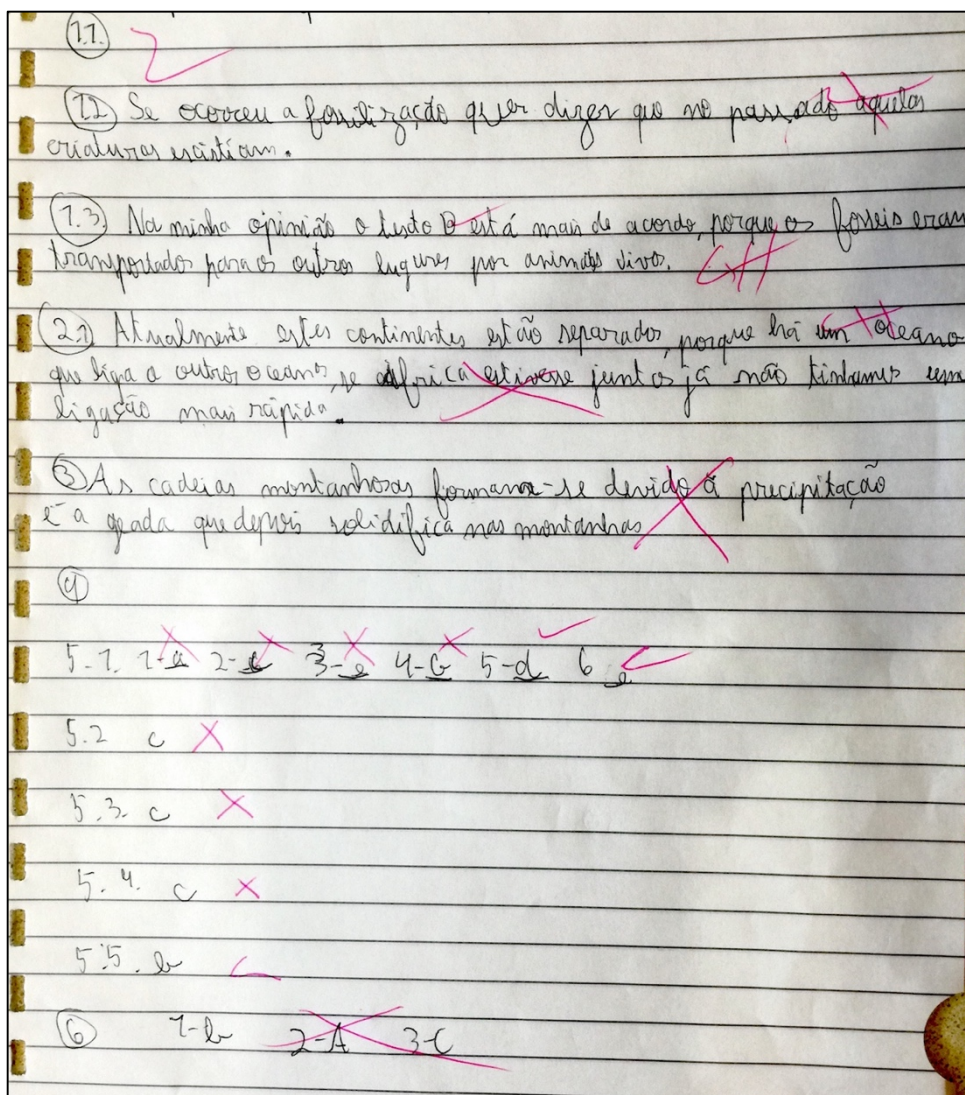 1.1.
1.2 Se ocorreu a fossilização quer dizer que no passado aquelas
criaturas existiam.
1.3. Na minha opinião o texto B está mais de acordo, porque os fosseis eram
transportados para os outros lugares por animais vivos.
2.1 Atualmente estes continentes estão separados, porque há um oceano
que liga a outros oceanos, se África estivesse juntos já não tinhamos uma
ligação mais rápida.
3 As cadeias montanhosas formam-se devido á precipitação
e a geada que depois solidifica nas montanhas
4
5.1. 1-a 2-c 3-e 4-b 5-d 6
5.2 c
5.3. c
5.4. c
5.5. b
6 1-b 2-A 3-C